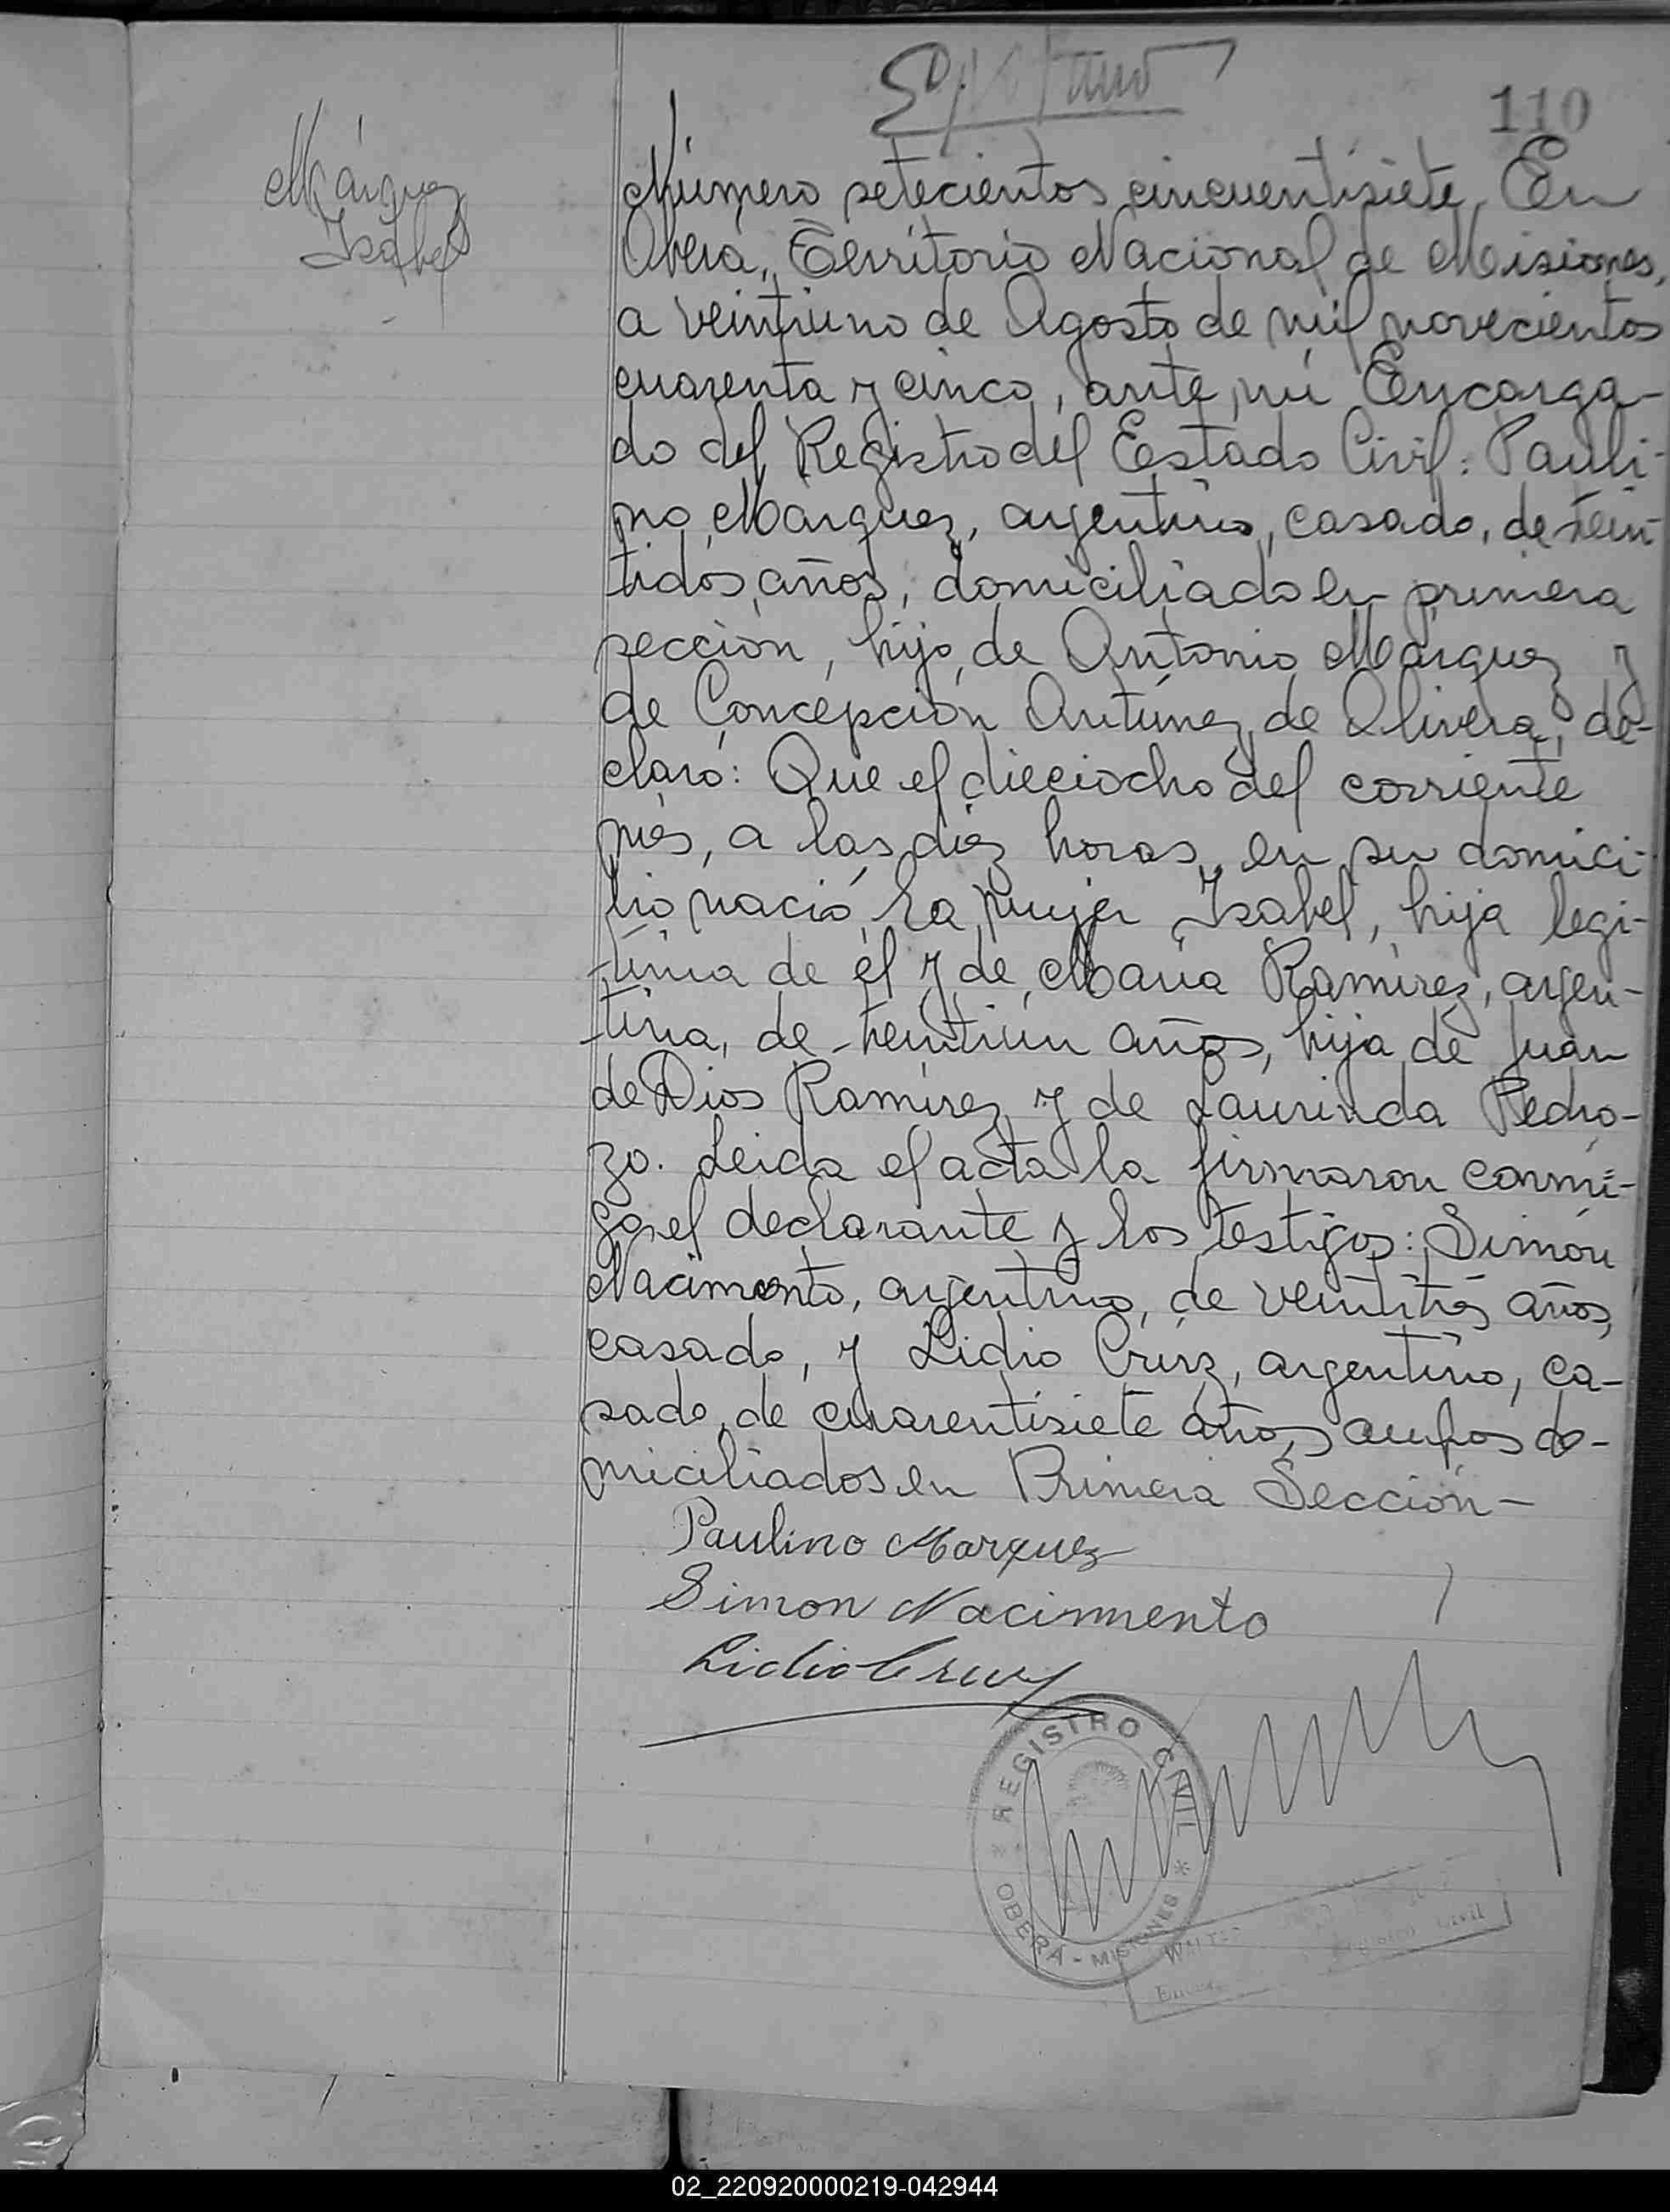 110
Márquez
Isabel
Número setecientos cincuentisiete. En
Oberá, Territorio Nacional de Misiones,
a veintiuno de Agosto de mil novecientos
cuarenta y cinco, ante mí Encarga-
do del Registro del Estado Civil: Pauli-
no Márquez, argentino, casado, de vein-
tidós años, domiciliado en primera
sección, hijo de Antonio Márquez y
de Concepción Antúnez de Olivera, de-
claró: Que el dieciocho del corriente
mes, a las diez horas, en su domici-
lio nació la mujer Isabel, hija legi-
tima de él y de María Ramírez, argen-
tina, de veintiún años, hija de Juan
de Dios Ramírez y de Laurinda Pedro-
zo. Leida el acta la firmaron conmi-
go el declarante y los testigos: Simón
Nacimento, argentino, de veintitrés años,
casado, y Lidio Cruz, argentino, ca-
sado, de cuarentisiete años, ambos do-
miciliados en Primera Sección-
Paulino Marquez
Simon Nacimento
Lidio Cruz
REGISTRO CIVIL
OBERÁ - MISIONES
WALTER
Registro Civil
02_220920000219-042944